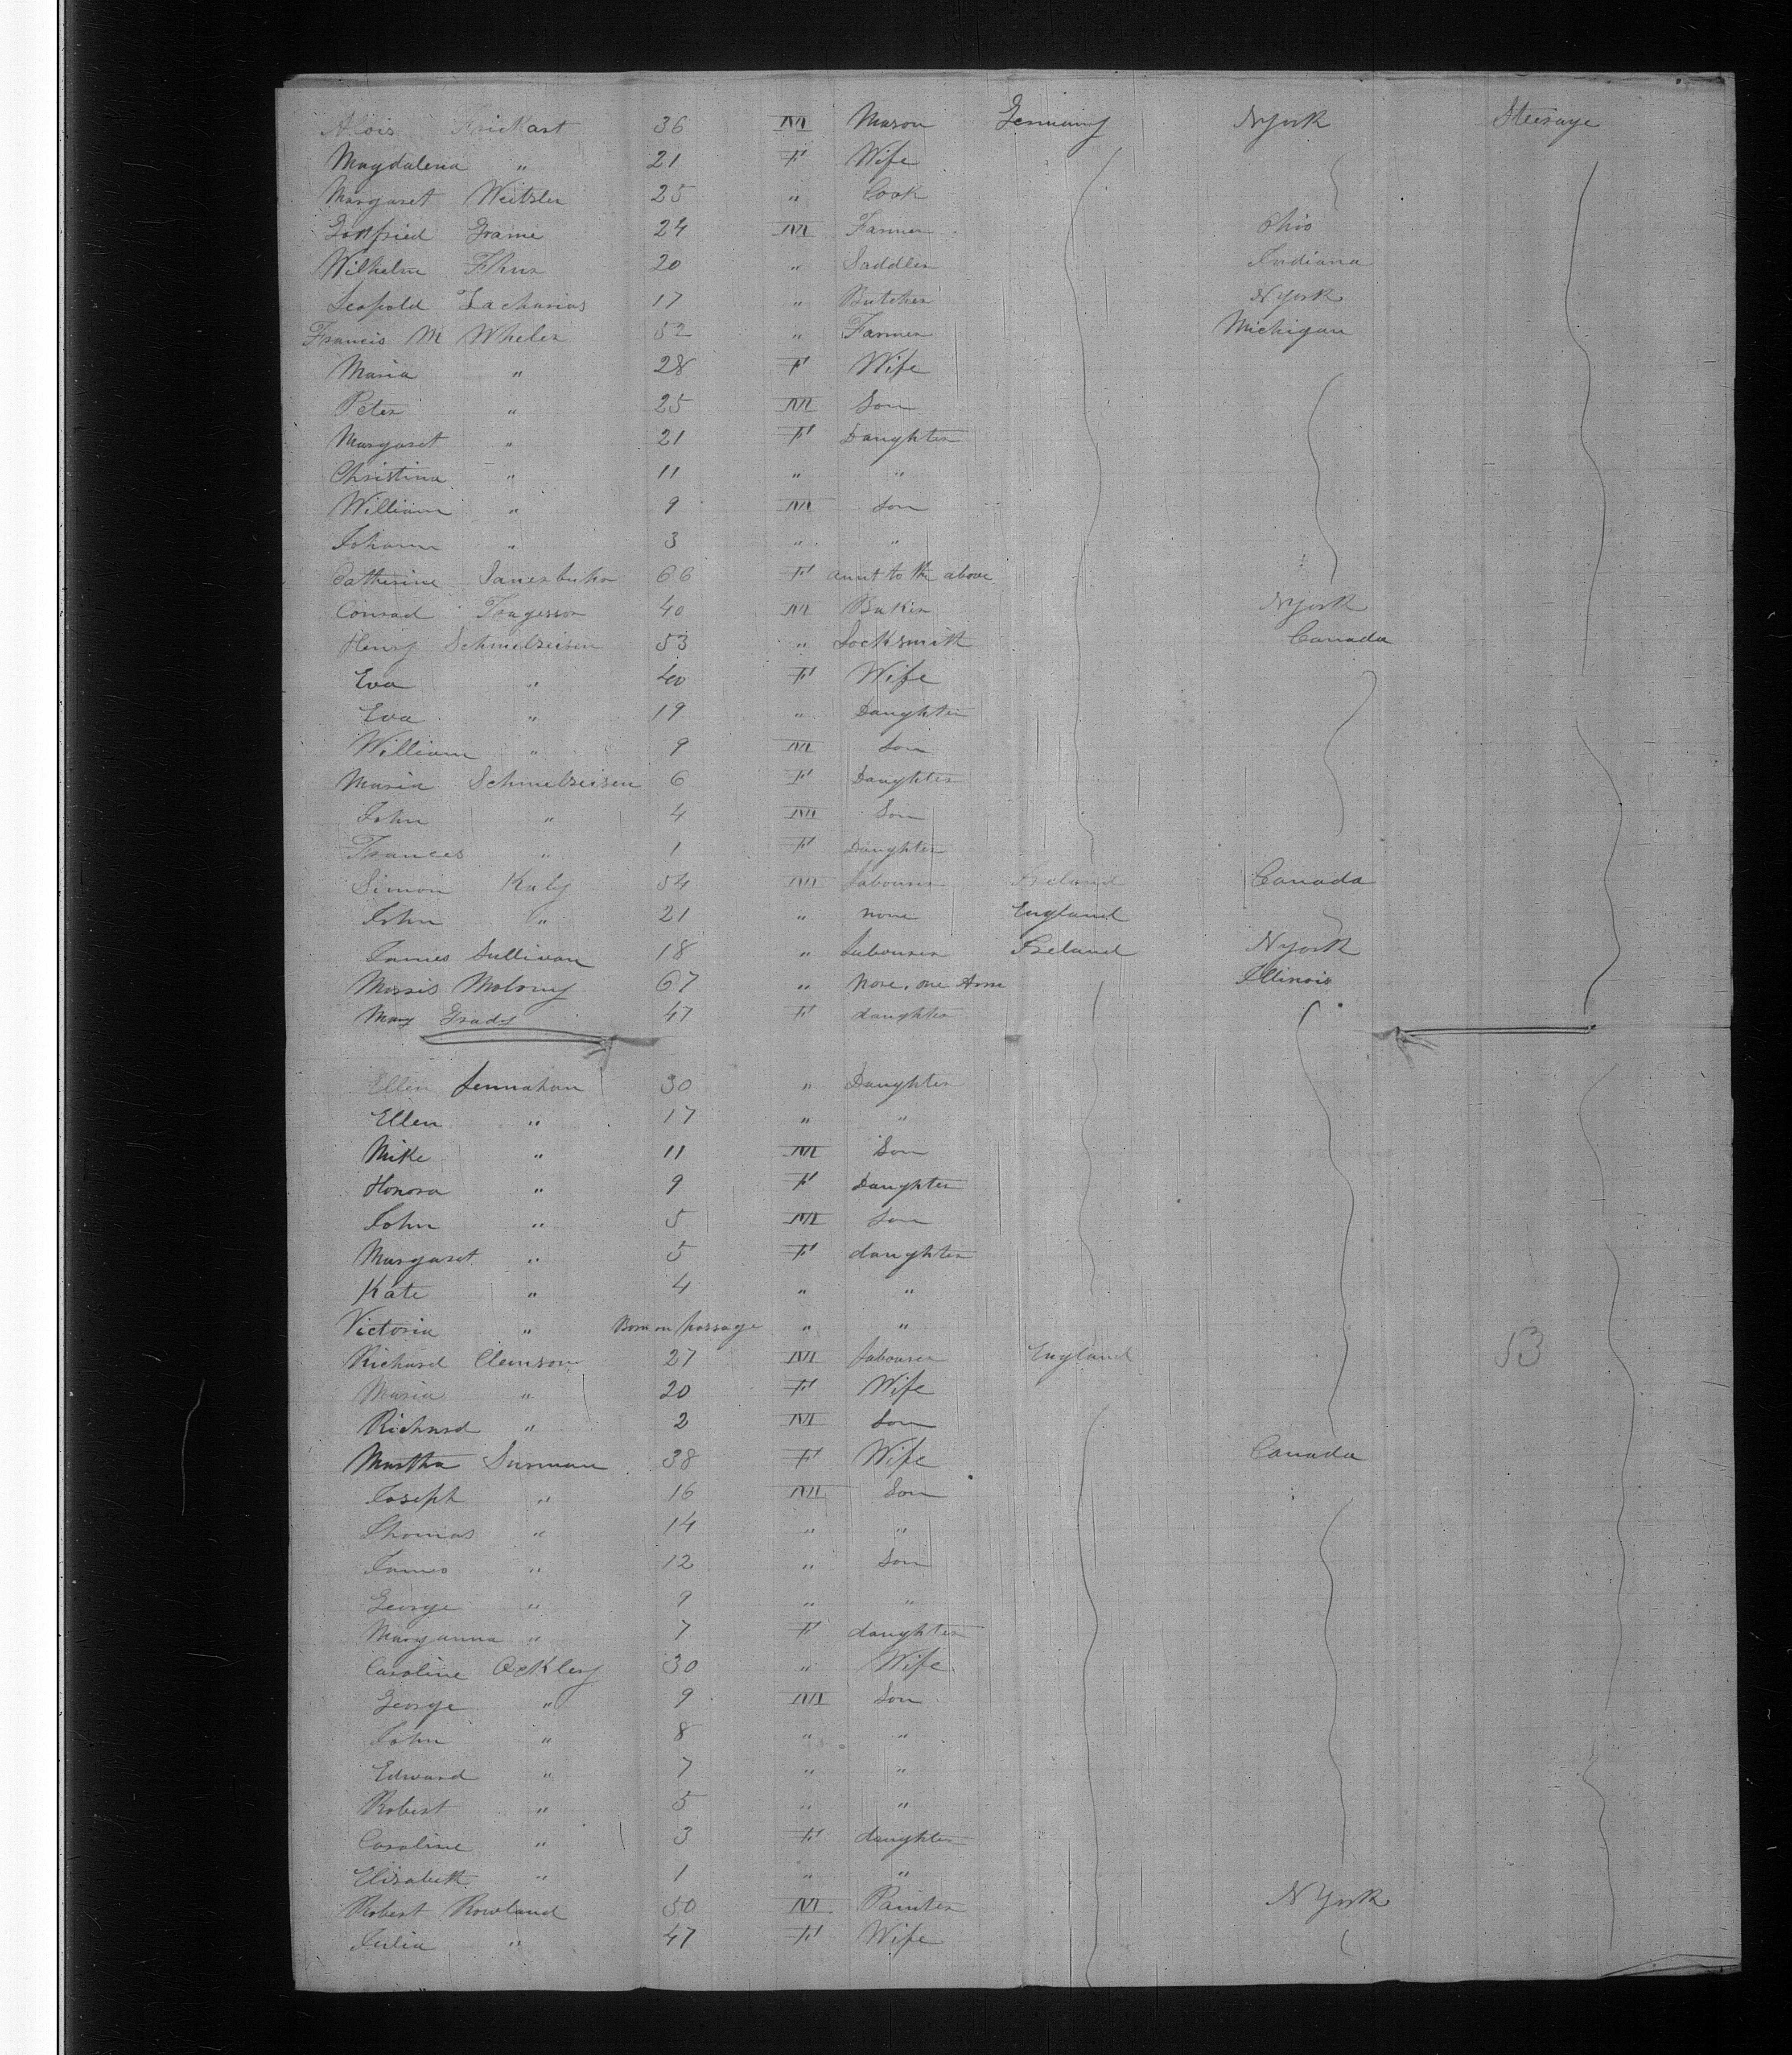 Alois Frickart 36 M Mason Germany NYork Steerage
Magdalena " 21 F Wife
Margaret Weitzler 25 " Cook
Gottfried Grame 24 M Farmer Ohio
Wilhelm 20 " Saddler Indiana
Leopold Zacharias 17 " Butcher NYork
Francis M Wheler 52 " Farmer Michigan
Maria " 28 F Wife
Peter " 25 M Son
Margaret " 21 F Daughter
Christina " 11 " "
William " 9 M Son
Johann " 3 " "
Catherine 66 F aunt to the above
Conrad 40 M Baker NYork
Henry Schmelzeisen 53 " Locksmith Canada
Eva " 40 F Wife
Eva " 19 " Daughter
William " 9 M Son
Maria Schmelzeisen 6 F Daughter
John " 4 M Son
Frances " 1 F Daughter
Simon Kaly 54 M Labourer Ireland Canada
John " 21 " none England
James Sullivan 18 " Labourer Ireland NYork
Morris Molony 67 " None, one Arm Illinois
Mary Grady 47 F daughter
Ellen Lennahan 30 " Daughter
Ellen " 17 " "
Mike " 11 M Son
Honora " 9 F Daughter
John " 5 M Son
Margaret " 5 F daughter
Kate " 4 " "
Victoria " Born on passage " "
Richard Clemson 27 M Labourer England 53
Maria " 20 F Wife
Richard " 2 M Son
Martha Surman 38 F Wife Canada
Joseph " 16 M Son
Thomas " 14 " "
James " 12 " Son
George " 9 " "
Maryanna " 7 F daughter
Caroline Ackley 30 " Wife
George " 9 M Son
John " 8 " "
Edward " 7 " "
Robert " 5 " "
Caroline " 3 F daughter
Elizabeth " 1 " "
Robert Rowland 50 M Painter NYork
Julia " 47 F Wife